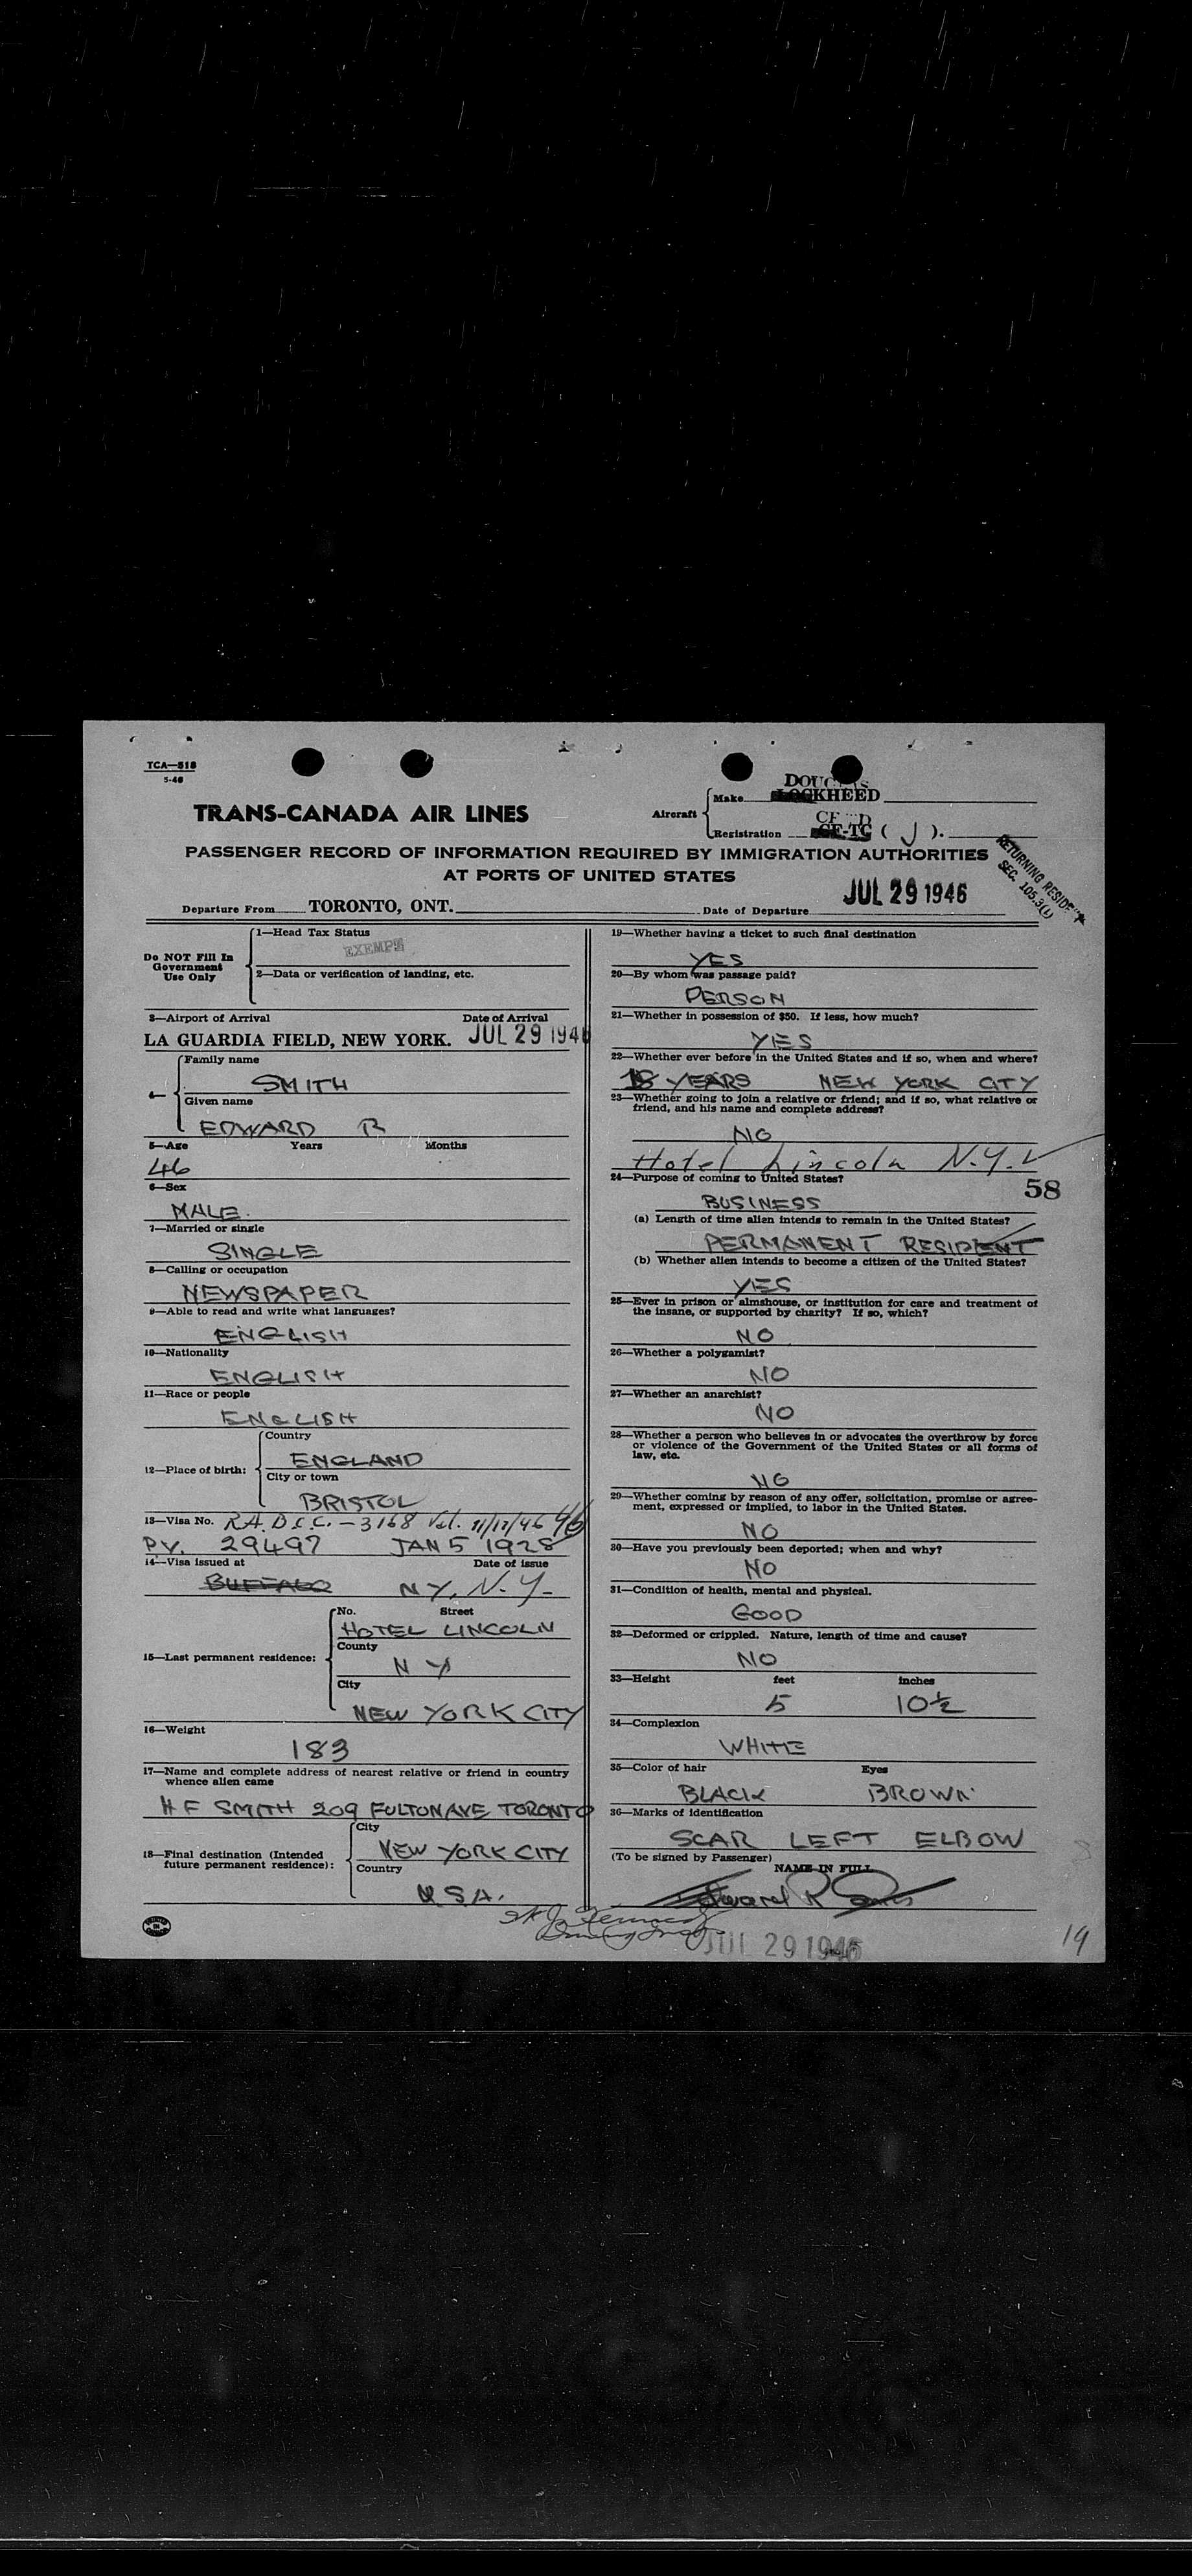 TCA—518
5-46
TRANS-CANADA AIR LINES
Aircraft
Make DOUGLAS LOCKHEED
Registration CF-TC ( J ).
PASSENGER RECORD OF INFORMATION REQUIRED BY IMMIGRATION AUTHORITIES
AT PORTS OF UNITED STATES
RETURNING RESIDENT
SEC. 105.3(1)
Departure From TORONTO, ONT.
Date of Departure JUL 29 1946
Do NOT Fill In Government Use Only
1—Head Tax Status
EXEMPT
2—Data or verification of landing, etc.
3—Airport of Arrival Date of Arrival
LA GUARDIA FIELD, NEW YORK. JUL 29 1946
4—
Family name
SMITH
Given name
EDWARD R
5—Age Years Months
46
6—Sex
MALE
7—Married or single
SINGLE
8—Calling or occupation
NEWSPAPER
9—Able to read and write what languages?
ENGLISH
10—Nationality
ENGLISH
11—Race or people
ENGLISH
12—Place of birth:
Country
ENGLAND
City or town
BRISTOL
13—Visa No. R.A. D.C.C. – 3168 Val.
P.V. 29497 JAN 5 1928
14—Visa issued at Date of issue
BUFFALO N Y, N.Y.
15—Last permanent residence:
No. Street
HOTEL LINCOLN
County
N Y
City
NEW YORK CITY
16—Weight
183
17—Name and complete address of nearest relative or friend in country
whence alien came
H F SMITH 209 FULTON AVE TORONTO
18—Final destination (Intended
future permanent residence):
City
NEW YORK CITY
Country
U S A.
19—Whether having a ticket to such final destination
YES
20—By whom was passage paid?
PERSON
21—Whether in possession of $50. If less, how much?
YES
22—Whether ever before in the United States and if so, when and where?
18 YEARS NEW YORK CITY
23—Whether going to join a relative or friend; and if so, what relative or
friend, and his name and complete address?
NO
Hotel Lincoln N.Y.
24—Purpose of coming to United States?
58
BUSINESS
(a) Length of time alien intends to remain in the United States?
PERMANENT RESIDENT
(b) Whether alien intends to become a citizen of the United States?
YES
25—Ever in prison or almshouse, or institution for care and treatment of
the insane, or supported by charity? If so, which?
NO
26—Whether a polygamist?
NO
27—Whether an anarchist?
NO
28—Whether a person who believes in or advocates the overthrow by force
or violence of the Government of the United States or all forms of
law, etc.
NO
29—Whether coming by reason of any offer, solicitation, promise or agree-
ment, expressed or implied, to labor in the United States.
NO
30—Have you previously been deported; when and why?
NO
31—Condition of health, mental and physical.
GOOD
32—Deformed or crippled. Nature, length of time and cause?
NO
33—Height feet inches
5 10½
34—Complexion
WHITE
35—Color of hair Eyes
BLACK BROWN
36—Marks of identification
SCAR LEFT ELBOW
(To be signed by Passenger)
NAME IN FULL
Edward R
JUL 29 1946
19